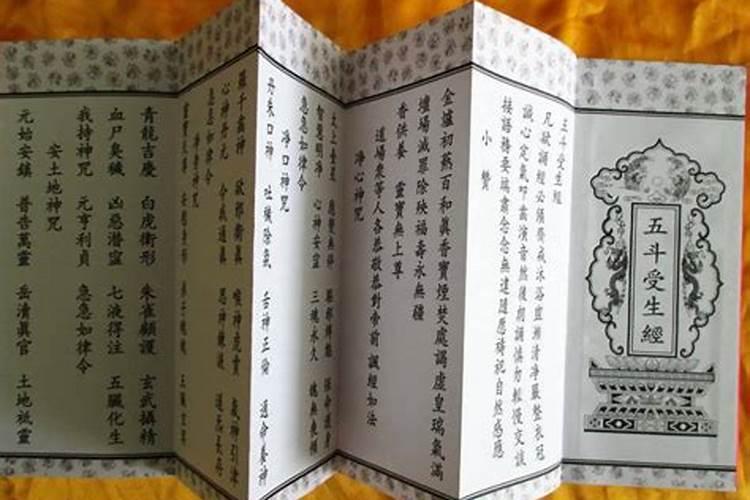 五斗受生經
五斗受生經
凡欲誦經必須齋戒沐浴盥漱清淨嚴整衣冠
誠心定氣叩齒演音然後朗誦慎勿輕慢交談
接語務要端肅念念無違隨應禱祀自然感應
小贊
金爐初爇百和真香寶煙焚處謁虛皇瑞氣滿
壇場滅罪除殃福壽永無疆
香供養 靈寶無上尊
道場衆等人各恭敬恭對帝前 誦經如法
淨心神咒
太上台星 應變無停 驅邪縛魅 保命護身
智慧明淨 心神安寧 三魂永久 魄無喪傾
急急如律令
淨口神咒
丹朱口神 吐穢除氛 舌神正倫 通命養神
羅千齒神 卻邪衛真 喉神虎賁 氣神引津
心神丹元 令我通真 思神鍊液 道炁長存
急急如律令
淨身神咒
靈寶天尊 安慰身形 弟子魂魄 五臟玄冥
青龍吉慶 白虎衛形 朱雀顧護 玄武攝精
血尸臭穢 凶惡潛寍 七液得注 五臟化生
我持神咒 元亨利貞 急急如律令
安土地神咒
元始安鎮 普告萬靈 岳瀆真官 土地祗靈